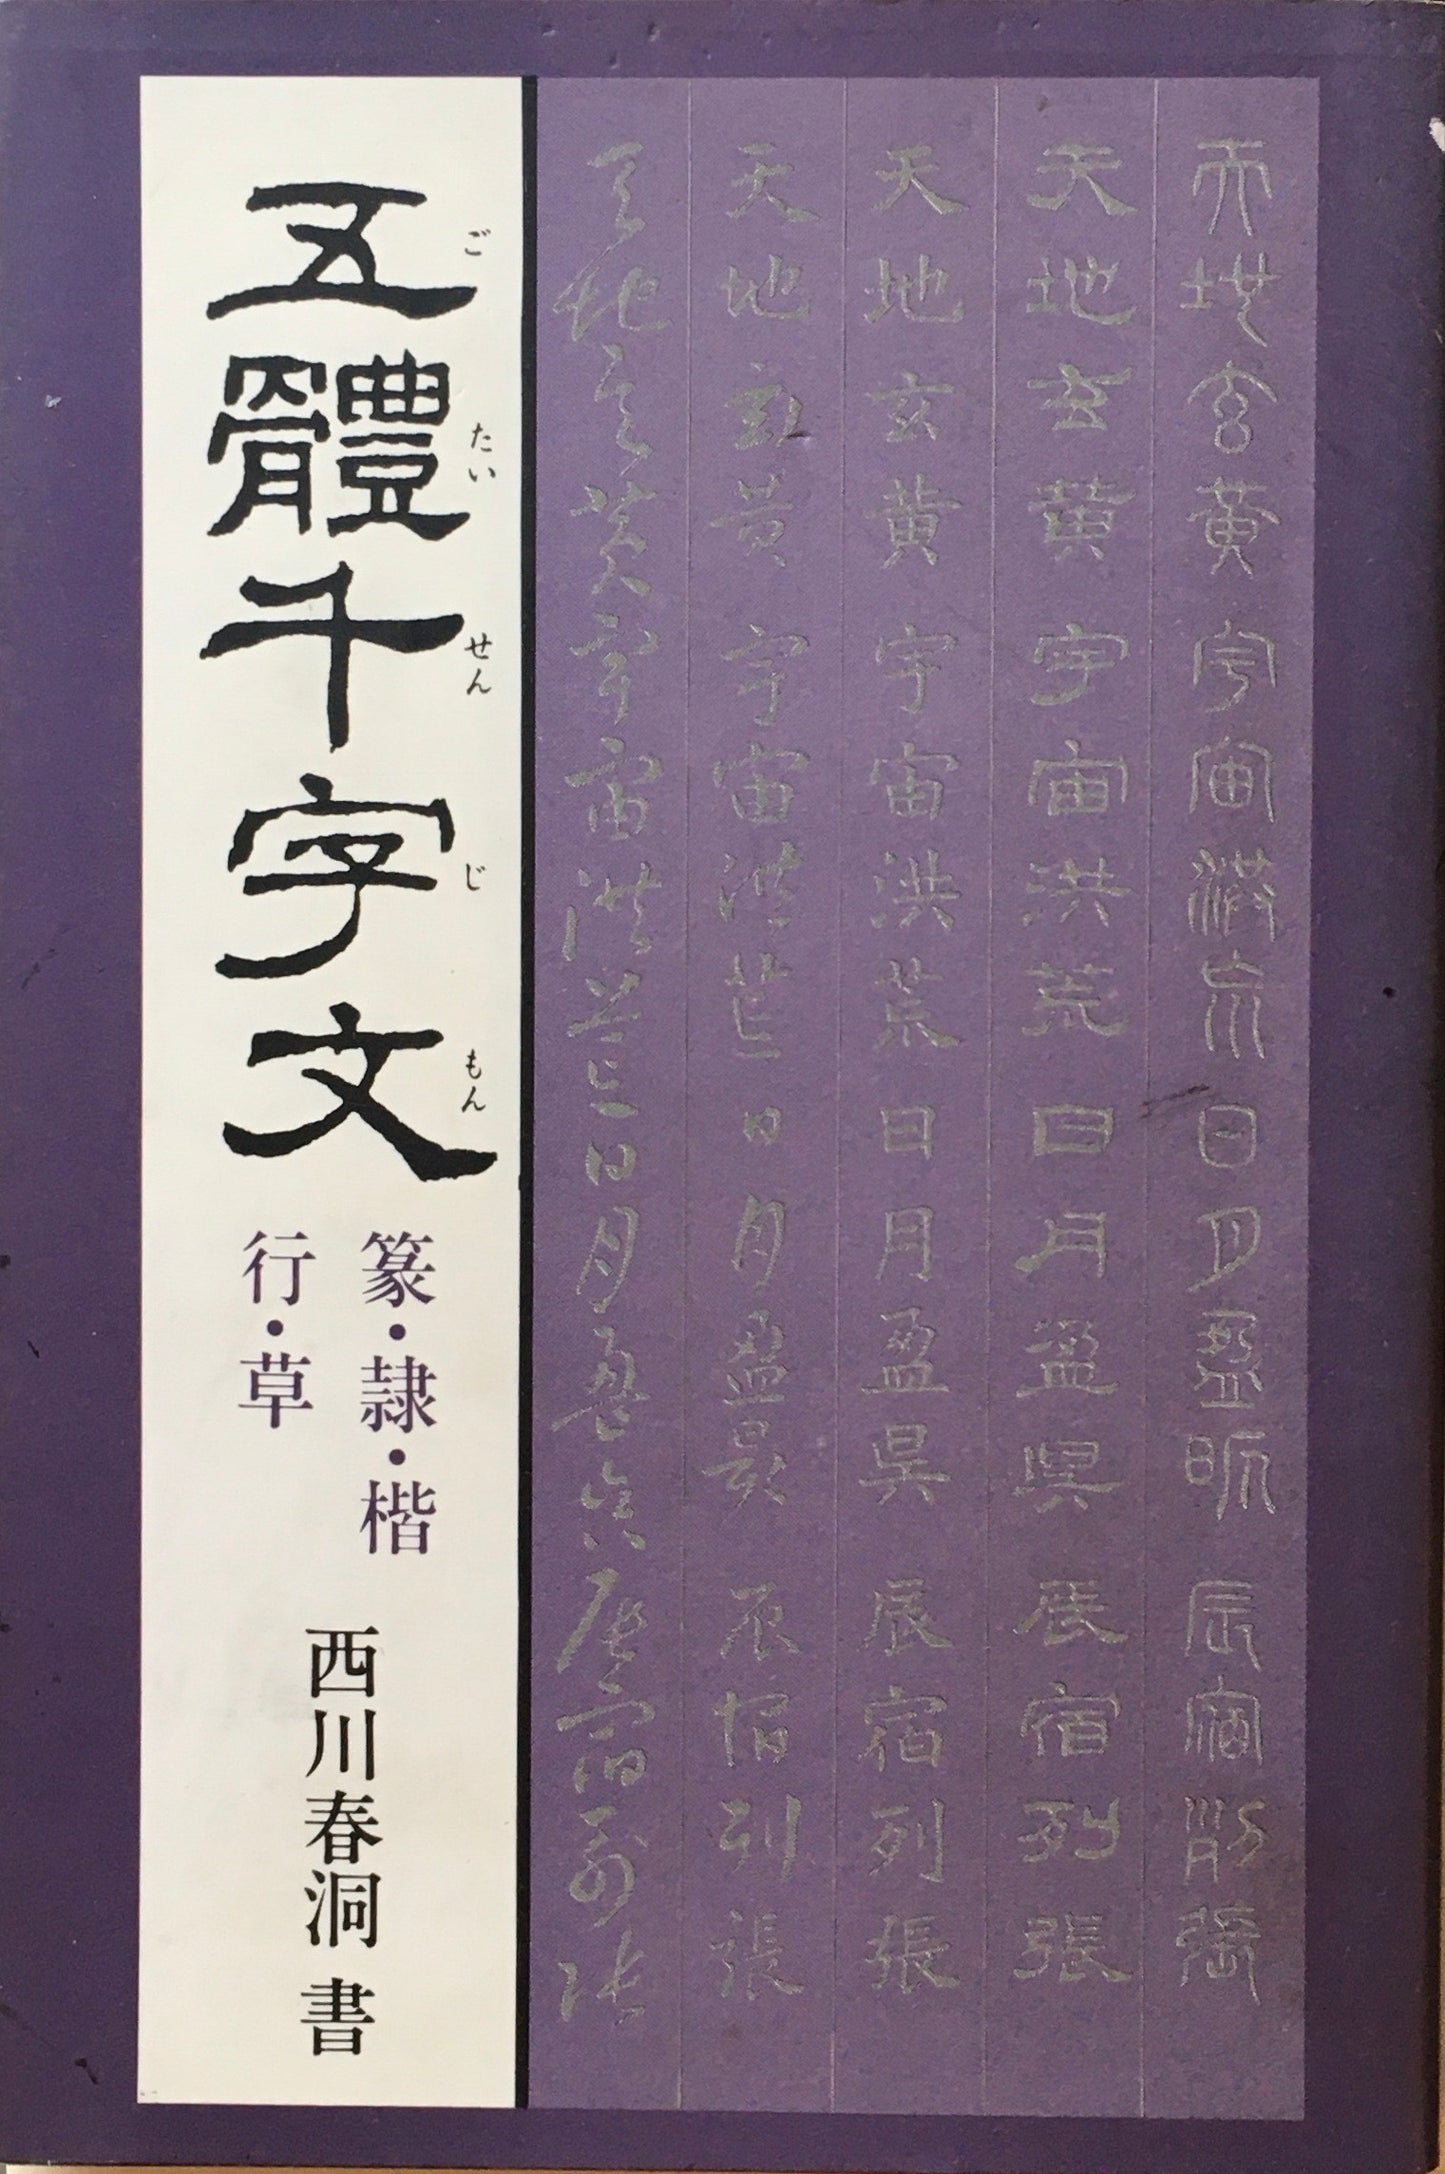 天地玄黄宇宙洪荒日月盈昃辰宿列張
天地玄黄宇宙洪荒日月盈昃辰宿列張
天地玄黄宇宙洪荒日月盈昃辰宿列張
天地玄黄宇宙洪荒日月盈昃辰宿列張
天地玄黄宇宙洪荒日月盈昃辰宿列張
ごたいせんじもん
五體千字文
篆・隷・楷
行・草
西川春洞 書